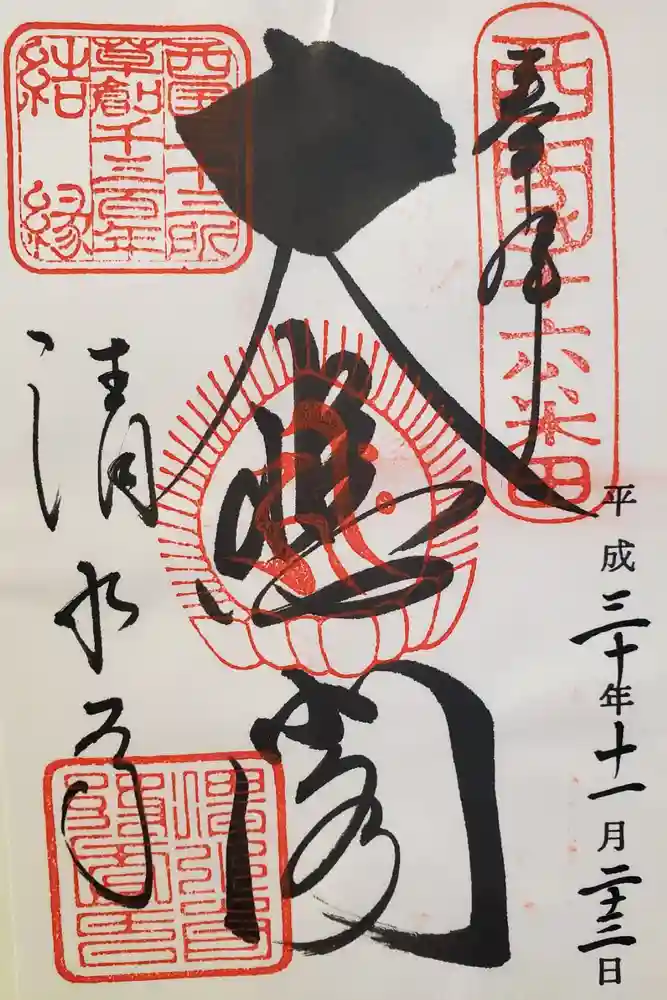 奉拝
西國十六番
平成三十年十一月二十三日
大悲閣
西国三十三所
草創千三百年
結縁
清水寺